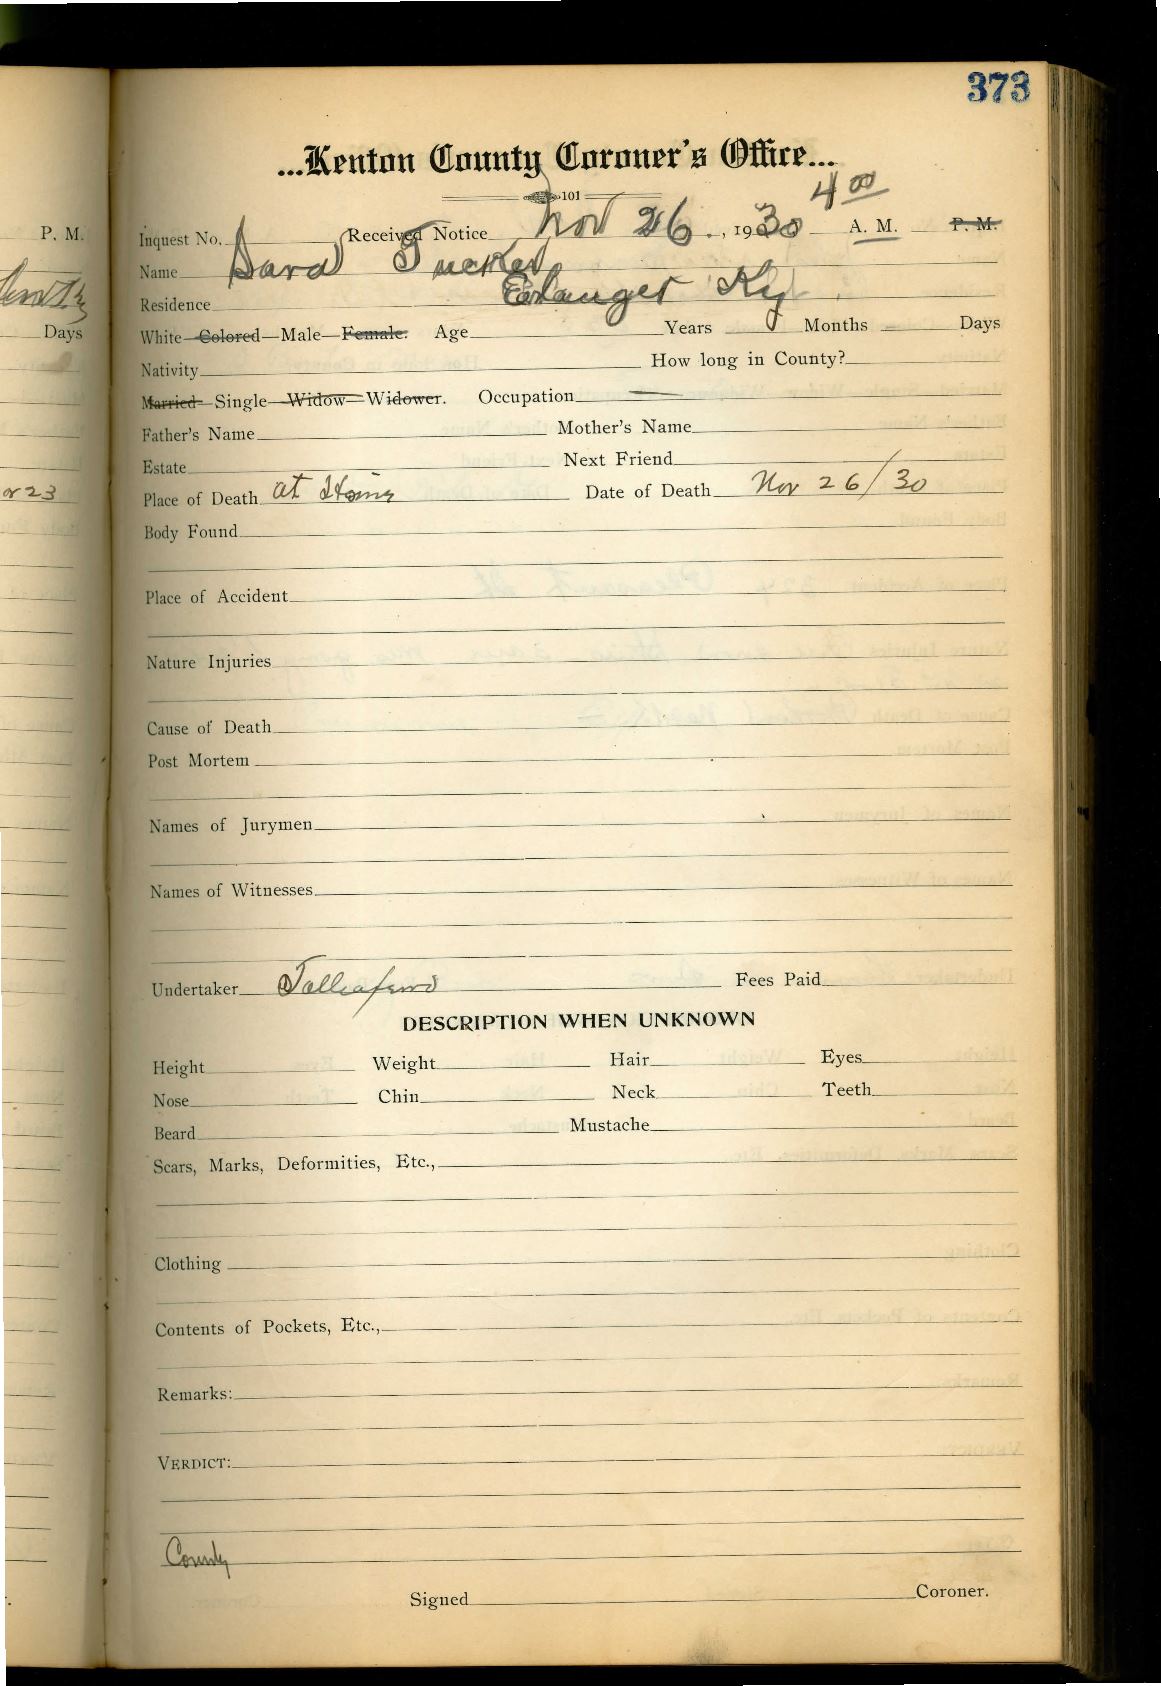 373
...Kenton County Coroner's Office...
101
4 00
Inquest No. Received Notice Nov 26, 1930 A. M. P. M.
Name Tucker
Residence Erlanger Ky
White—Colored—Male—Female. Age Years Months Days
Nativity How long in County?
Married—Single—Widow—Widower. Occupation
Father's Name Mother's Name
Estate Next Friend
Place of Death at Home Date of Death Nov 26/30
Body Found
Place of Accident
Nature Injuries
Cause of Death
Post Mortem
Names of Jurymen
Names of Witnesses
Undertaker Talliaferro Fees Paid
DESCRIPTION WHEN UNKNOWN
Height Weight Hair Eyes
Nose Chin Neck Teeth
Beard Mustache
Scars, Marks, Deformities, Etc.,
Clothing
Contents of Pockets, Etc.,
Remarks:
VERDICT:
County
Signed Coroner.
P. M.
Days
23